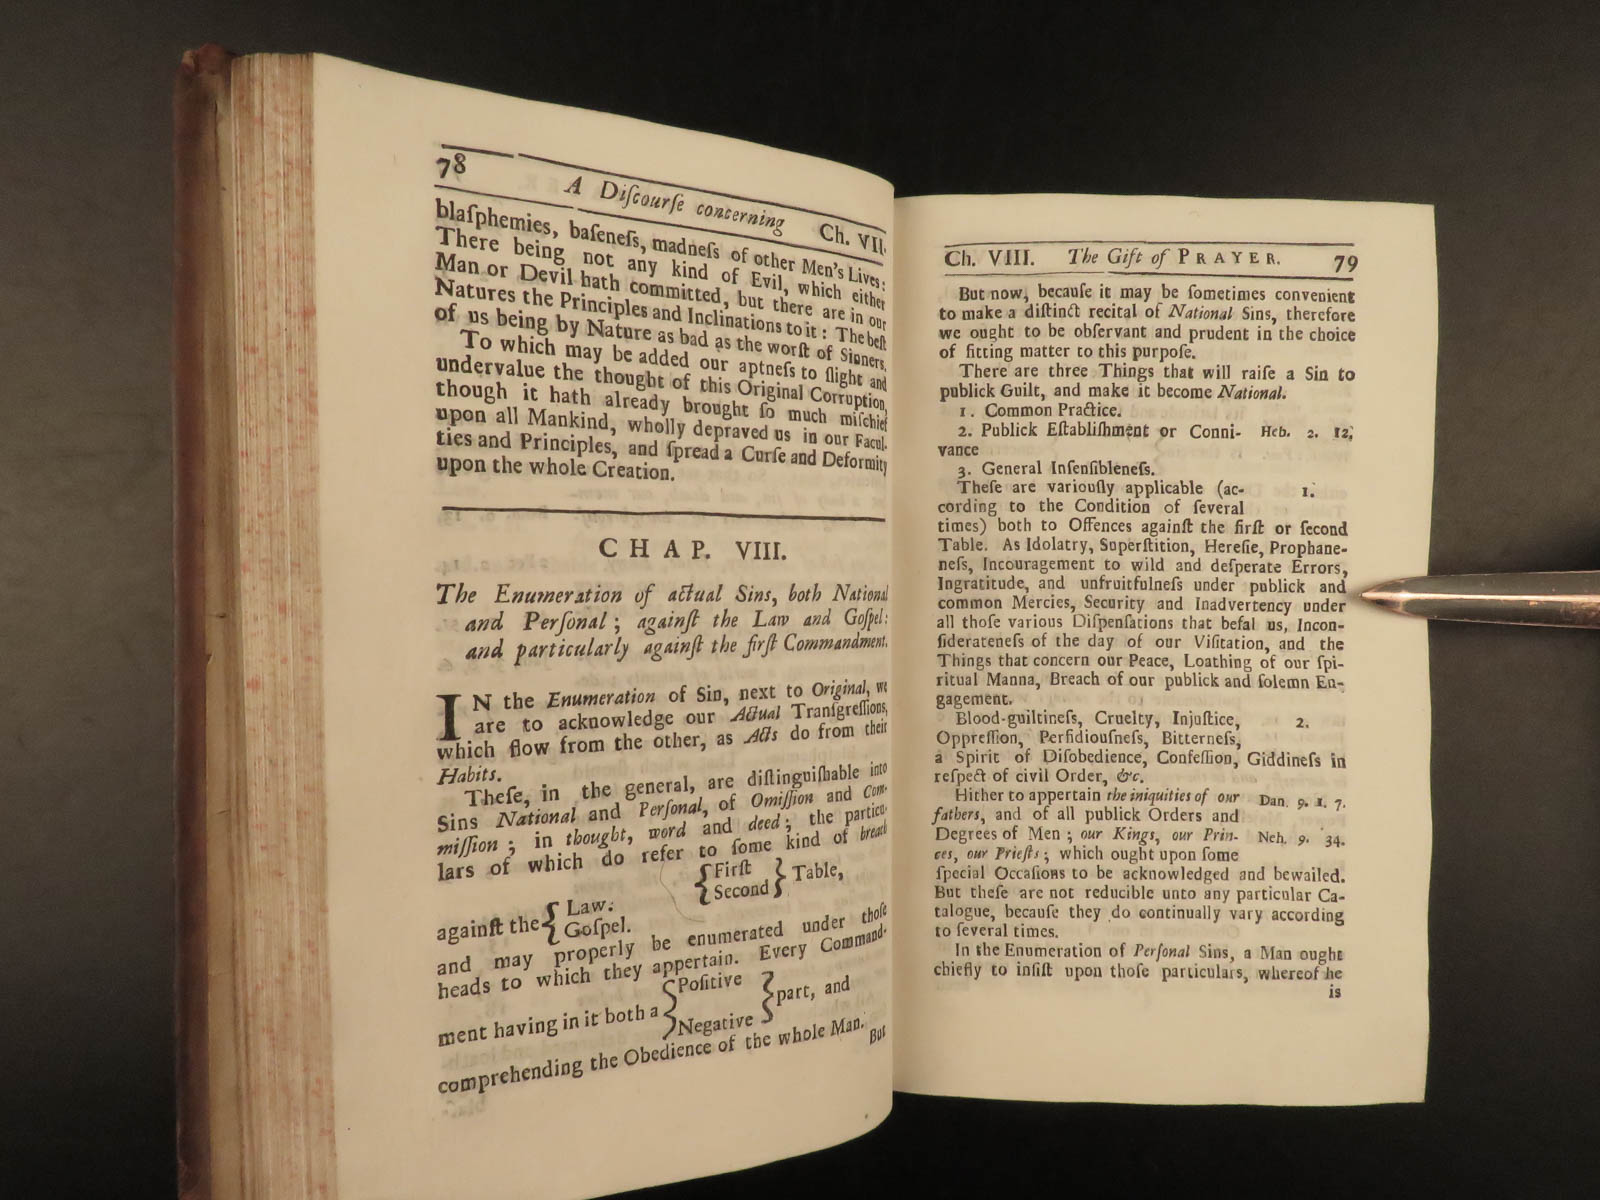 78 A Diſcourſe concerning Ch. VII.
blaſphemies, baſeneſs, madneſs of other Men's Lives:
There being not any kind of Evil, which either
Man or Devil hath committed, but there are in our
Natures the Principles and Inclinations to it: The beſt
of us being by Nature as bad as the worſt of Sinners.
To which may be added our aptneſs to ſlight and
undervalue the thought of this Original Corruption,
though it hath already brought ſo much miſchief
upon all Mankind, wholly depraved us in our Facul-
ties and Principles, and ſpread a Curſe and Deformity
upon the whole Creation.
CHAP. VIII.
The Enumeration of actual Sins, both National
and Perſonal; againſt the Law and Goſpel:
and particularly againſt the firſt Commandment.
IN the Enumeration of Sin, next to Original, we
are to acknowledge our Actual Tranſgreſſions,
which flow from the other, as Acts do from their
Habits.
Theſe, in the general, are diſtinguiſhable into
Sins National and Perſonal, of Omiſſion and Com-
miſſion; in thought, word and deed; the particu-
lars of which do refer to ſome kind of breach
againſt the { Law: { Firſt Second } Table,
Goſpel.
and may properly be enumerated under thoſe
heads to which they appertain. Every Command-
ment having in it both a { Poſitive Negative } part, and
comprehending the Obedience of the whole Man.
But
Ch. VIII. The Gift of PRAYER. 79
But now, becauſe it may be ſometimes convenient
to make a diſtinct recital of National Sins, therefore
we ought to be obſervant and prudent in the choice
of fitting matter to this purpoſe.
There are three Things that will raiſe a Sin to
publick Guilt, and make it become National.
1. Common Practice.
2. Publick Eſtabliſhment or Conni- Heb. 2. 12,
vance
3. General Inſenſibleneſs.
Theſe are variouſly applicable (ac- 1.
cording to the Condition of ſeveral
times) both to Offences againſt the firſt or ſecond
Table. As Idolatry, Superſtition, Hereſie, Prophane-
neſs, Incouragement to wild and deſperate Errors,
Ingratitude, and unfruitfulneſs under publick and
common Mercies, Security and Inadvertency under
all thoſe various Diſpenſations that befal us, Incon-
ſiderateneſs of the day of our Viſitation, and the
Things that concern our Peace, Loathing of our ſpi-
ritual Manna, Breach of our publick and ſolemn En-
gagement.
Blood-guiltineſs, Cruelty, Injuſtice, 2.
Oppreſſion, Perfidiouſneſs, Bitterneſs,
a Spirit of Diſobedience, Confeſſion, Giddineſs in
reſpect of civil Order, &c.
Hither to appertain the iniquities of our Dan. 9. 1. 7.
fathers, and of all publick Orders and
Degrees of Men; our Kings, our Prin- Neh. 9. 34.
ces, our Prieſts; which ought upon ſome
ſpecial Occaſions to be acknowledged and bewailed.
But theſe are not reducible unto any particular Ca-
talogue, becauſe they do continually vary according
to ſeveral times.
In the Enumeration of Perſonal Sins, a Man ought
chiefly to inſiſt upon thoſe particulars, whereof he
is